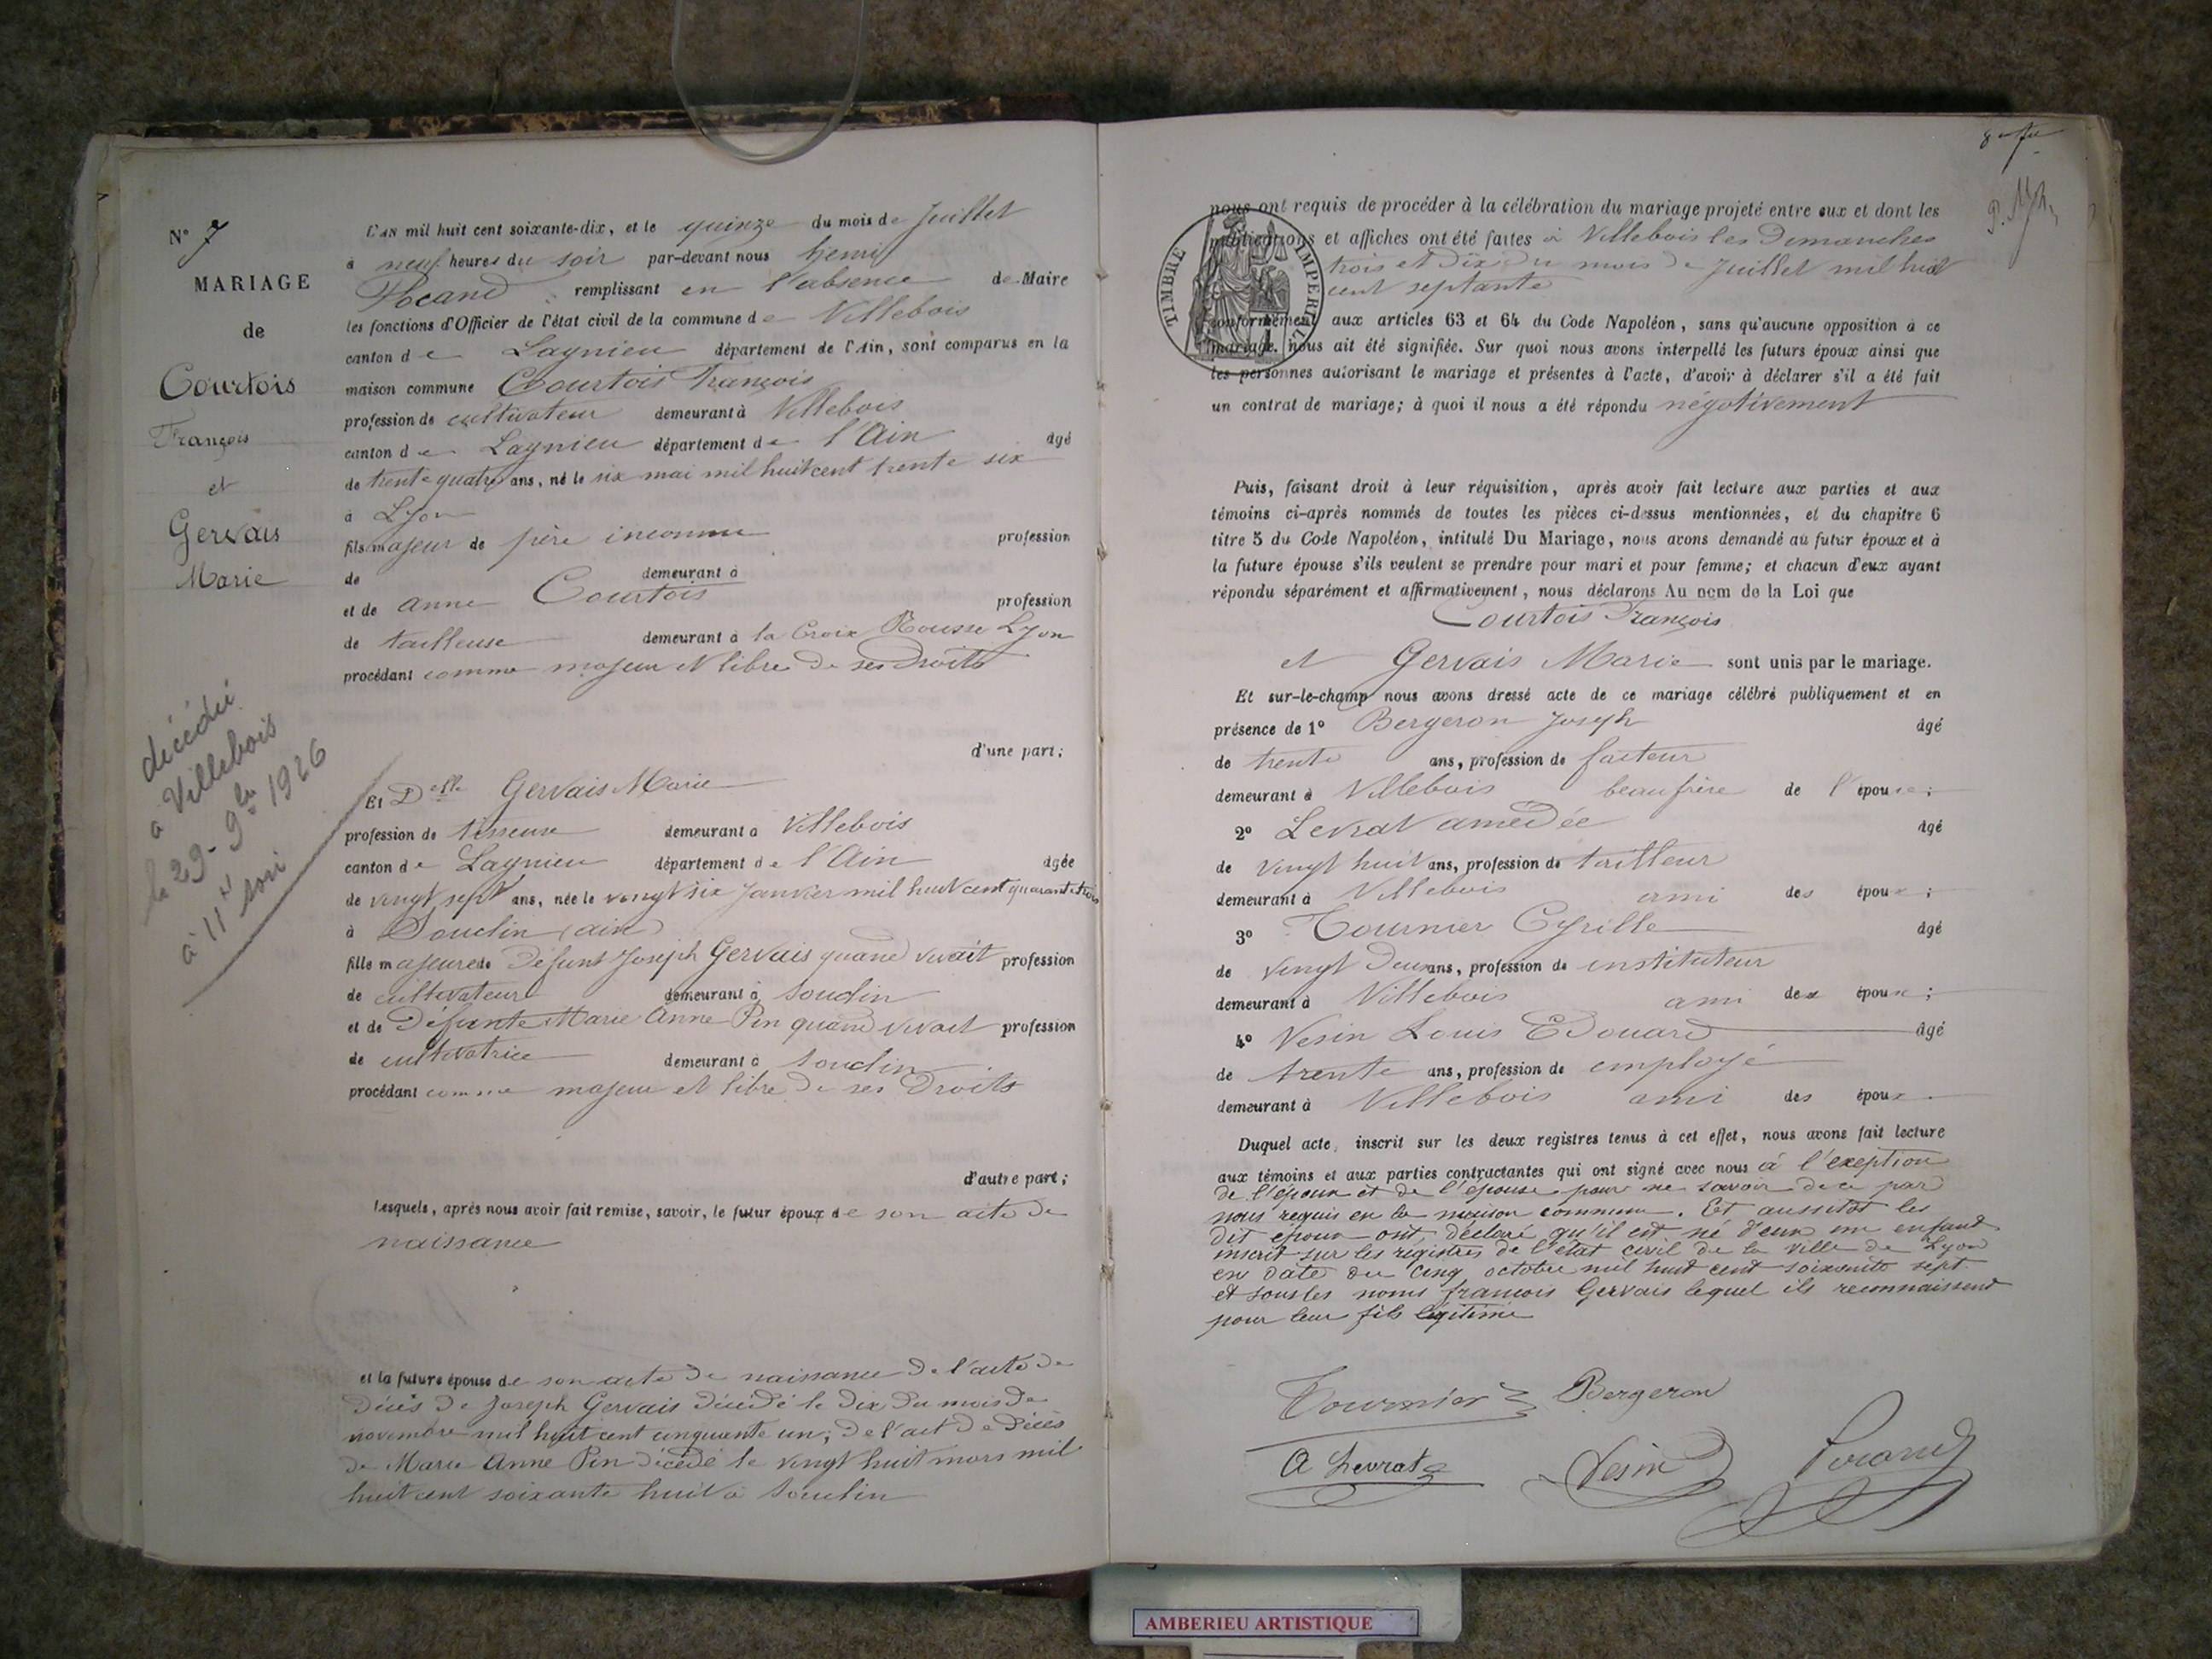 N° 7
MARIAGE
de
Courtois
François
et
Gervais
Marie
décédée
à Villebois
le 29 9bre 1926
à 11h soir
L'AN mil huit cent soixante-dix, et le quinze du mois de Juillet
à neuf heures du soir par-devant nous henri
remplissant en l'absence de Maire
les fonctions d'Officier de l'état civil de la commune de Villebois
canton de Lagnieu département de l'Ain, sont comparus en la
maison commune Courtois François
profession de cultivateur demeurant à Villebois
canton de Lagnieu département de l'Ain âgé
de trente quatre ans, né le six mai mil huit cent trente six
à Lyon
fils majeur de père inconnu profession
de demeurant à
et de anne Courtois profession
de tailleuse demeurant à la Croix Rousse Lyon
procédant comme majeur et libre de ses droits
d'une part;
Et Delle Gervais Marie
profession de tisseuse demeurant à Villebois
canton de Lagnieu département de l'Ain âgée
de vingt sept ans, née le vingt six Janvier mil huit cent quarante trois
à Souclin (ain)
fille majeure de Défunt Joseph Gervais quand vivait profession
de cultivateur demeurant à Souclin
et de Défunte Marie Anne Pin quand vivait profession
de cultivatrice demeurant à Souclin
procédant comme majeur et libre de ses Droits
d'autre part;
Lesquels, après nous avoir fait remise, savoir, le futur époux de son acte de
naissance
et la future épouse de son acte de naissance de l'acte de
Décès de Joseph Gervais décédé le dix du mois de
novembre mil huit cent cinquante un; de l'act de Décès
de Marie Anne Pin décédé le vingt huit mars mil
huit cent soixante huit à Souclin
nous ont requis de procéder à la célébration du mariage projeté entre eux et dont les
publications et affiches ont été faites à Villebois les Dimanches
trois et Dix du mois de Juillet mil huit
cent septante
TIMBRE IMPERIAL
conformément aux articles 63 et 64 du Code Napoléon, sans qu'aucune opposition à ce
mariage nous ait été signifiée. Sur quoi nous avons interpellé les futurs époux ainsi que
les personnes autorisant le mariage et présentes à l'acte, d'avoir à déclarer s'il a été fait
un contrat de mariage; à quoi il nous a été répondu négativement
Puis, faisant droit à leur réquisition, après avoir fait lecture aux parties et aux
témoins ci-après nommés de toutes les pièces ci-dessus mentionnées, et du chapitre 6
titre 5 du Code Napoléon, intitulé Du Mariage, nous avons demandé au futur époux et à
la future épouse s'ils veulent se prendre pour mari et pour femme; et chacun d'eux ayant
répondu séparément et affirmativement, nous déclarons Au nom de la Loi que
Courtois François
et Gervais Marie sont unis par le mariage.
Et sur-le-champ nous avons dressé acte de ce mariage célébré publiquement et en
présence de 1° Bergeron Joseph âgé
de trente ans, profession de facteur
demeurant à Villebois beaufrère de l'épouse;
2° Levrat amédée âgé
de vingt huit ans, profession de tailleur
demeurant à Villebois ami des époux;
3° Tournier Cyrille âgé
de vingt deux ans, profession de instituteur
demeurant à Villebois ami des époux;
4° Vesin Louis Edouard âgé
de trente ans, profession de employé
demeurant à Villebois ami des époux
Duquel acte, inscrit sur les deux registres tenus à cet effet, nous avons fait lecture
aux témoins et aux parties contractantes qui ont signé avec nous à l'exeption
de l'époux et de l'épouse pour ne savoir de ce par
nous requis en la maison commune. Et aussitôt les
dit époux ont déclaré qu'il est né d'eux un enfant
inscrit sur les registres de l'état civil de la ville de Lyon
en date du cinq octobre mil huit cent soixante sept
et sous les noms francois Gervais lequel ils reconnaissent
pour leur fils légitime
Tournier Bergeron
A Levrat Vesin
AMBERIEU ARTISTIQUE